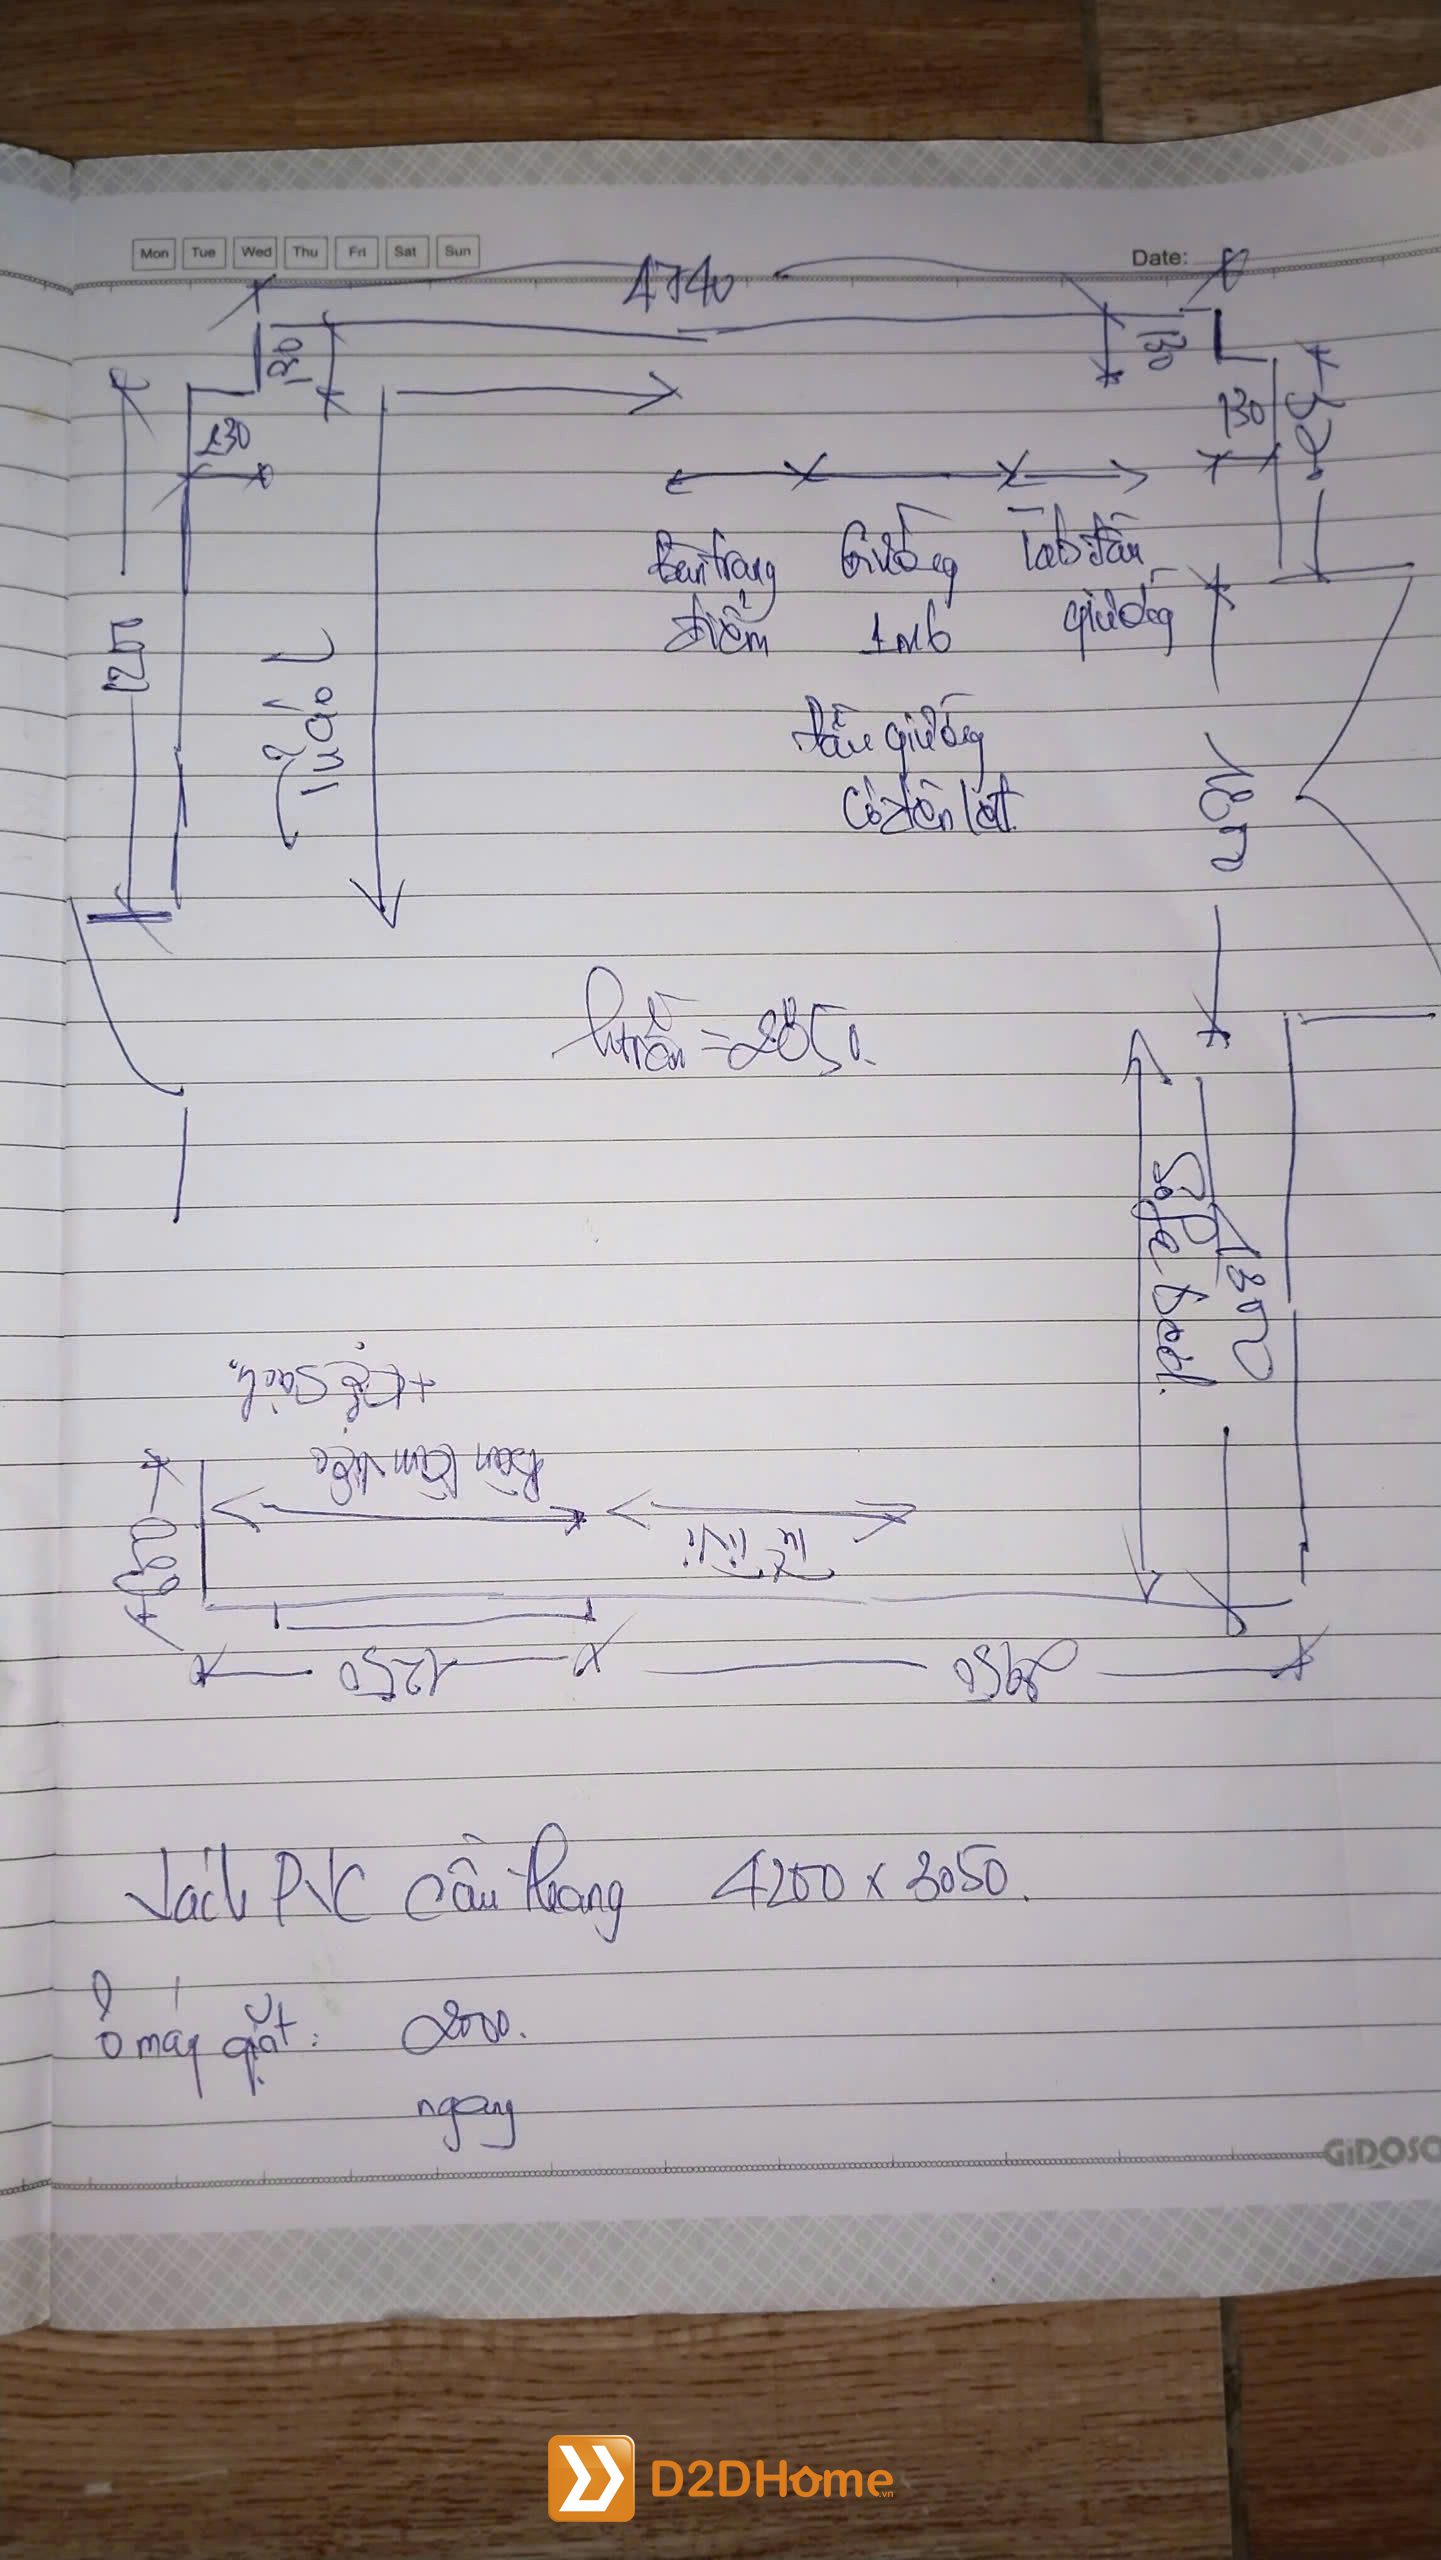 Mon Tue Wed Thu Fri Sat Sun
Date:
4740
130
130
130
130
520
Bàn trang
điểm
Giường
1m6
Tab đầu
giường
Tủ áo L
đầu giường
có đèn led
h trần = 2850
Sofa bed.
Bàn làm việc
+ kệ sách
Tủ tivi
1250
2950
Vách PVC cầu thang 4200 x 3050.
ô máy giặt: 2000.
ngang
GiDOSO
D2DHome.vn